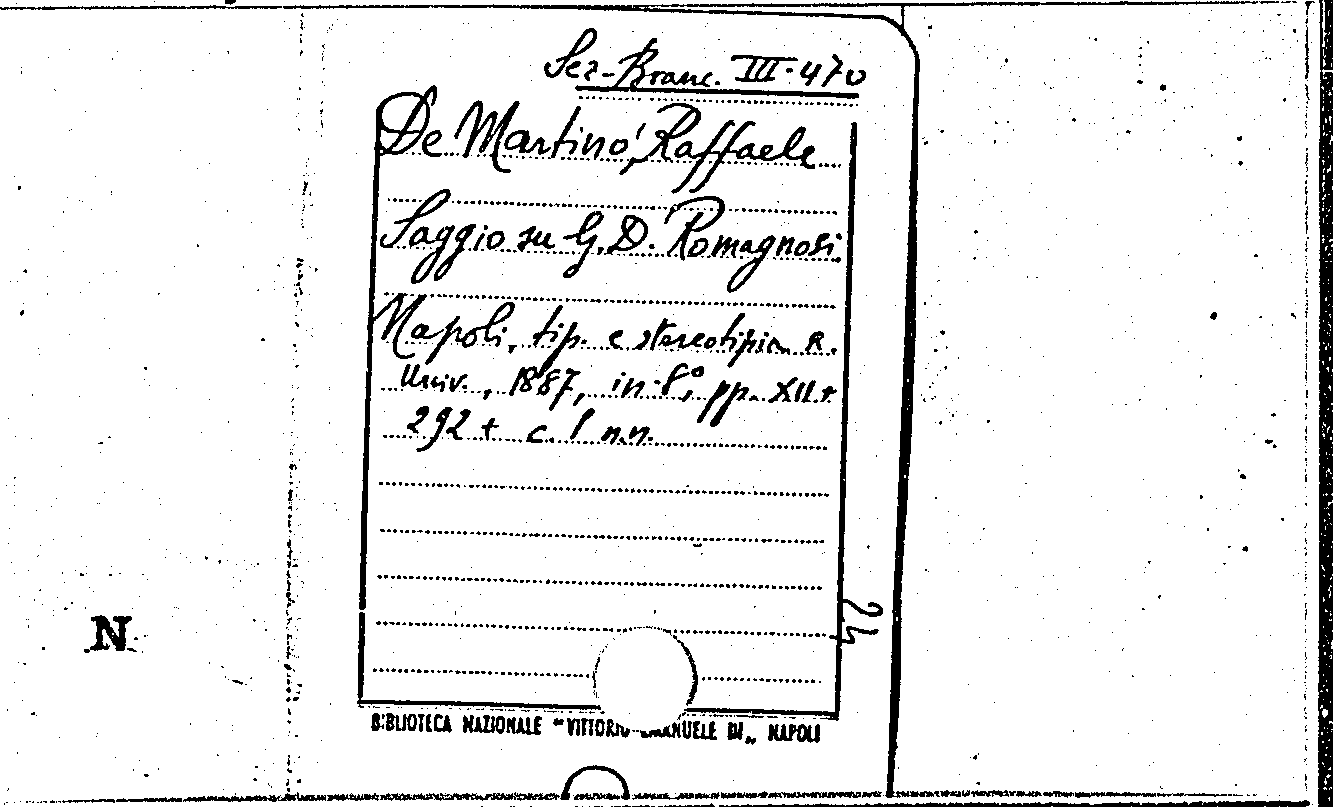 Sez-Branc. III-470
De Martino, Raffaele
Saggio su G. D. Romagnosi.
Napoli, tip. e stereotipia R.
Univ., 1887, in-8°, pp. XII+
292 + c. 1 n.n.
24
N
BIBLIOTECA NAZIONALE "VITTORIO EMANUELE III„ NAPOLI